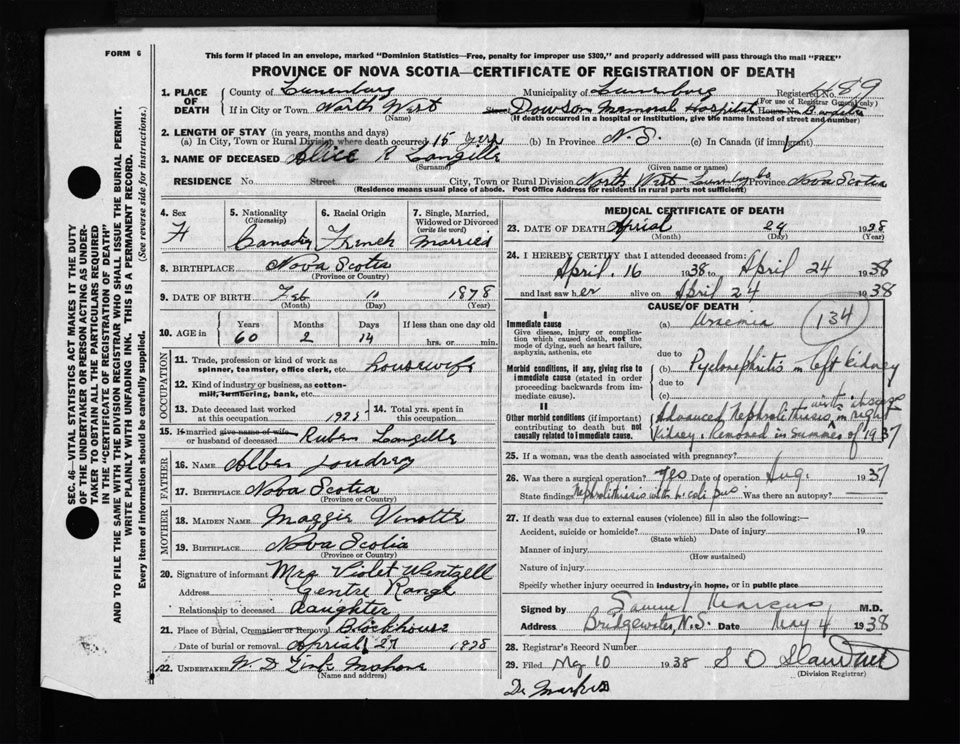 FORM 6
This form if placed in an envelope, marked "Dominion Statistics—Free, penalty for improper use $300," and properly addressed will pass through the mail "FREE"
PROVINCE OF NOVA SCOTIA—CERTIFICATE OF REGISTRATION OF DEATH
SEC. 46—VITAL STATISTICS ACT MAKES IT THE DUTY
OF THE UNDERTAKER OR PERSON ACTING AS UNDER-
TAKER TO OBTAIN ALL THE PARTICULARS REQUIRED
IN THE "CERTIFICATE OF REGISTRATION OF DEATH"
AND TO FILE THE SAME WITH THE DIVISION REGISTRAR WHO SHALL ISSUE THE BURIAL PERMIT.
WRITE PLAINLY WITH UNFADING INK. THIS IS A PERMANENT RECORD.
Every item of information should be carefully supplied. (See reverse side for instructions.)
1. PLACE OF DEATH County of Lunenburg Municipality of Lunenburg Registered No. 489
(For use of Registrar General only)
If in City or Town North West Street Dowson Memorial Hospital House No.
(Name) (If death occurred in a hospital or institution, give the name instead of street and number)
2. LENGTH OF STAY (in years, months and days)
(a) In City, Town or Rural Division where death occurred 15 yrs (b) In Province N.S. (c) In Canada (if immigrant)
3. NAME OF DECEASED Alice R Langille
(Surname) (Given name or names)
RESIDENCE No. Street City, Town or Rural Division North West Lunenbg Co Province Nova Scotia
(Residence means usual place of abode. Post Office Address for residents in rural parts not sufficient)
4. Sex F
5. Nationality (Citizenship) Canadian
6. Racial Origin French
7. Single, Married, Widowed or Divorced (write the word) Married
8. BIRTHPLACE Nova Scotia
(Province or Country)
9. DATE OF BIRTH Feb 10 1878
(Month) (Day) (Year)
10. AGE in Years 60 Months 2 Days 14 If less than one day old
hrs. or min.
OCCUPATION
11. Trade, profession or kind of work as spinner, teamster, office clerk, etc. housewife
12. Kind of industry or business, as cotton-mill, lumbering, bank, etc.
13. Date deceased last worked at this occupation 14. Total yrs. spent in this occupation
15. If married give name of wife or husband of deceased Ruben Langille
FATHER
16. NAME Alben Joudrey
17. BIRTHPLACE Nova Scotia
(Province or Country)
MOTHER
18. MAIDEN NAME Maggie Vinotte
19. BIRTHPLACE Nova Scotia
(Province or Country)
20. Signature of informant Mrs Violet Wentzell
Address Centre Range
Relationship to deceased daughter
21. Place of Burial, Cremation or Removal Blockhouse
Date of burial or removal Aprial 27 1938
22. UNDERTAKER W D Mahone
(Name and address)
MEDICAL CERTIFICATE OF DEATH
23. DATE OF DEATH Aprial 24 1938
(Month) (Day) (Year)
24. I HEREBY CERTIFY that I attended deceased from:
April. 16 1938 to April 24 1938
and last saw her alive on April 24 1938
CAUSE OF DEATH
I
Immediate cause (a) Uraemia 134
Give disease, injury or complication which caused death, not the mode of dying, such as heart failure, asphyxia, asthenia, etc
due to
Morbid conditions, if any, giving rise to immediate cause (stated in order proceeding backwards from immediate cause). (b) Pyelonephritis in left kidney
due to
(c)
II
Other morbid conditions (if important) contributing to death but not causally related to immediate cause. Advanced Nephrolithiasis, in right
Kidney. Removed in Summer of 1937
25. If a woman, was the death associated with pregnancy?
26. Was there a surgical operation? Yes Date of operation Aug. 1937
State findings Nephrolithiasis with b. coli pus. Was there an autopsy? —
27. If death was due to external causes (violence) fill in also the following:—
Accident, suicide or homicide? Date of injury 19
(State which)
Manner of injury
(How sustained)
Nature of injury
Specify whether injury occurred in industry, in home, or in public place
Signed by Samuel Marcus M.D.
Address Bridgewater, N.S. Date May 4 1938
28. Registrar's Record Number
29. Filed May 10 1938 S O
(Division Registrar)
Dr Markus